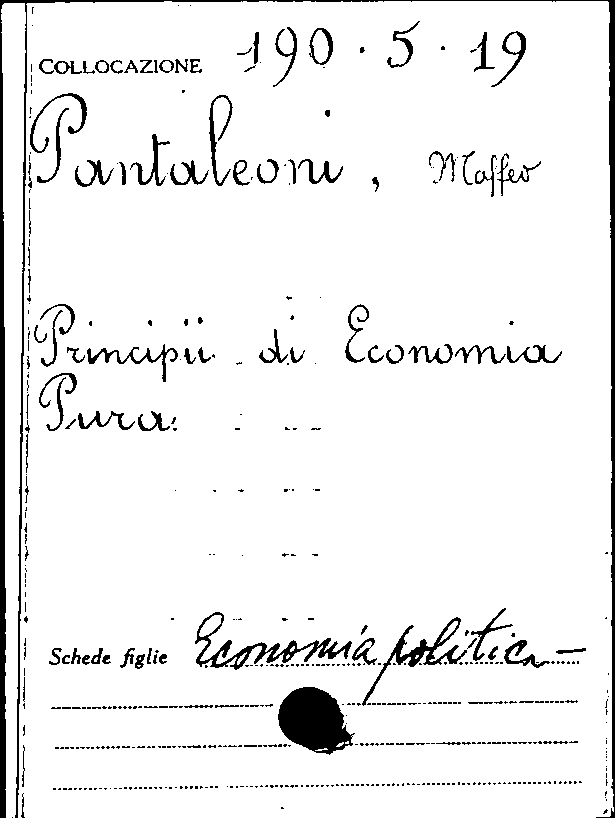 COLLOCAZIONE 190 · 5 · 19
Pantaleoni, Maffeo
Principii di Economia
Pura.
Schede figlie Economia politica —